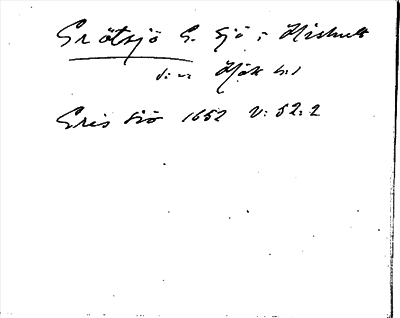 Grötsjö G. Sjö i Hishult
Hök h:d
Gris siö 1652 V: 52:2